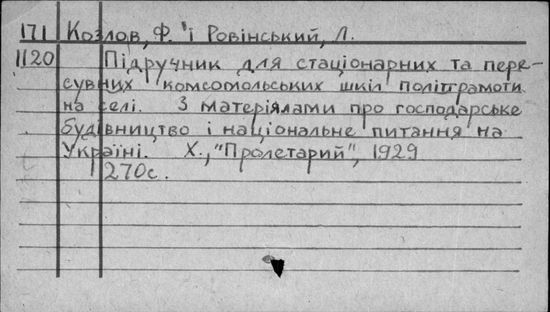 171 Козлов, Ф. і Ровінський, Л.
1120 Підручник для стаціонарних та пере-
сувних комсомольських шкіл політграмоти
на селі. З матеріялами про господарське
будівництво і національне питання на
Україні. Х., "Пролетарий", 1929
270с.